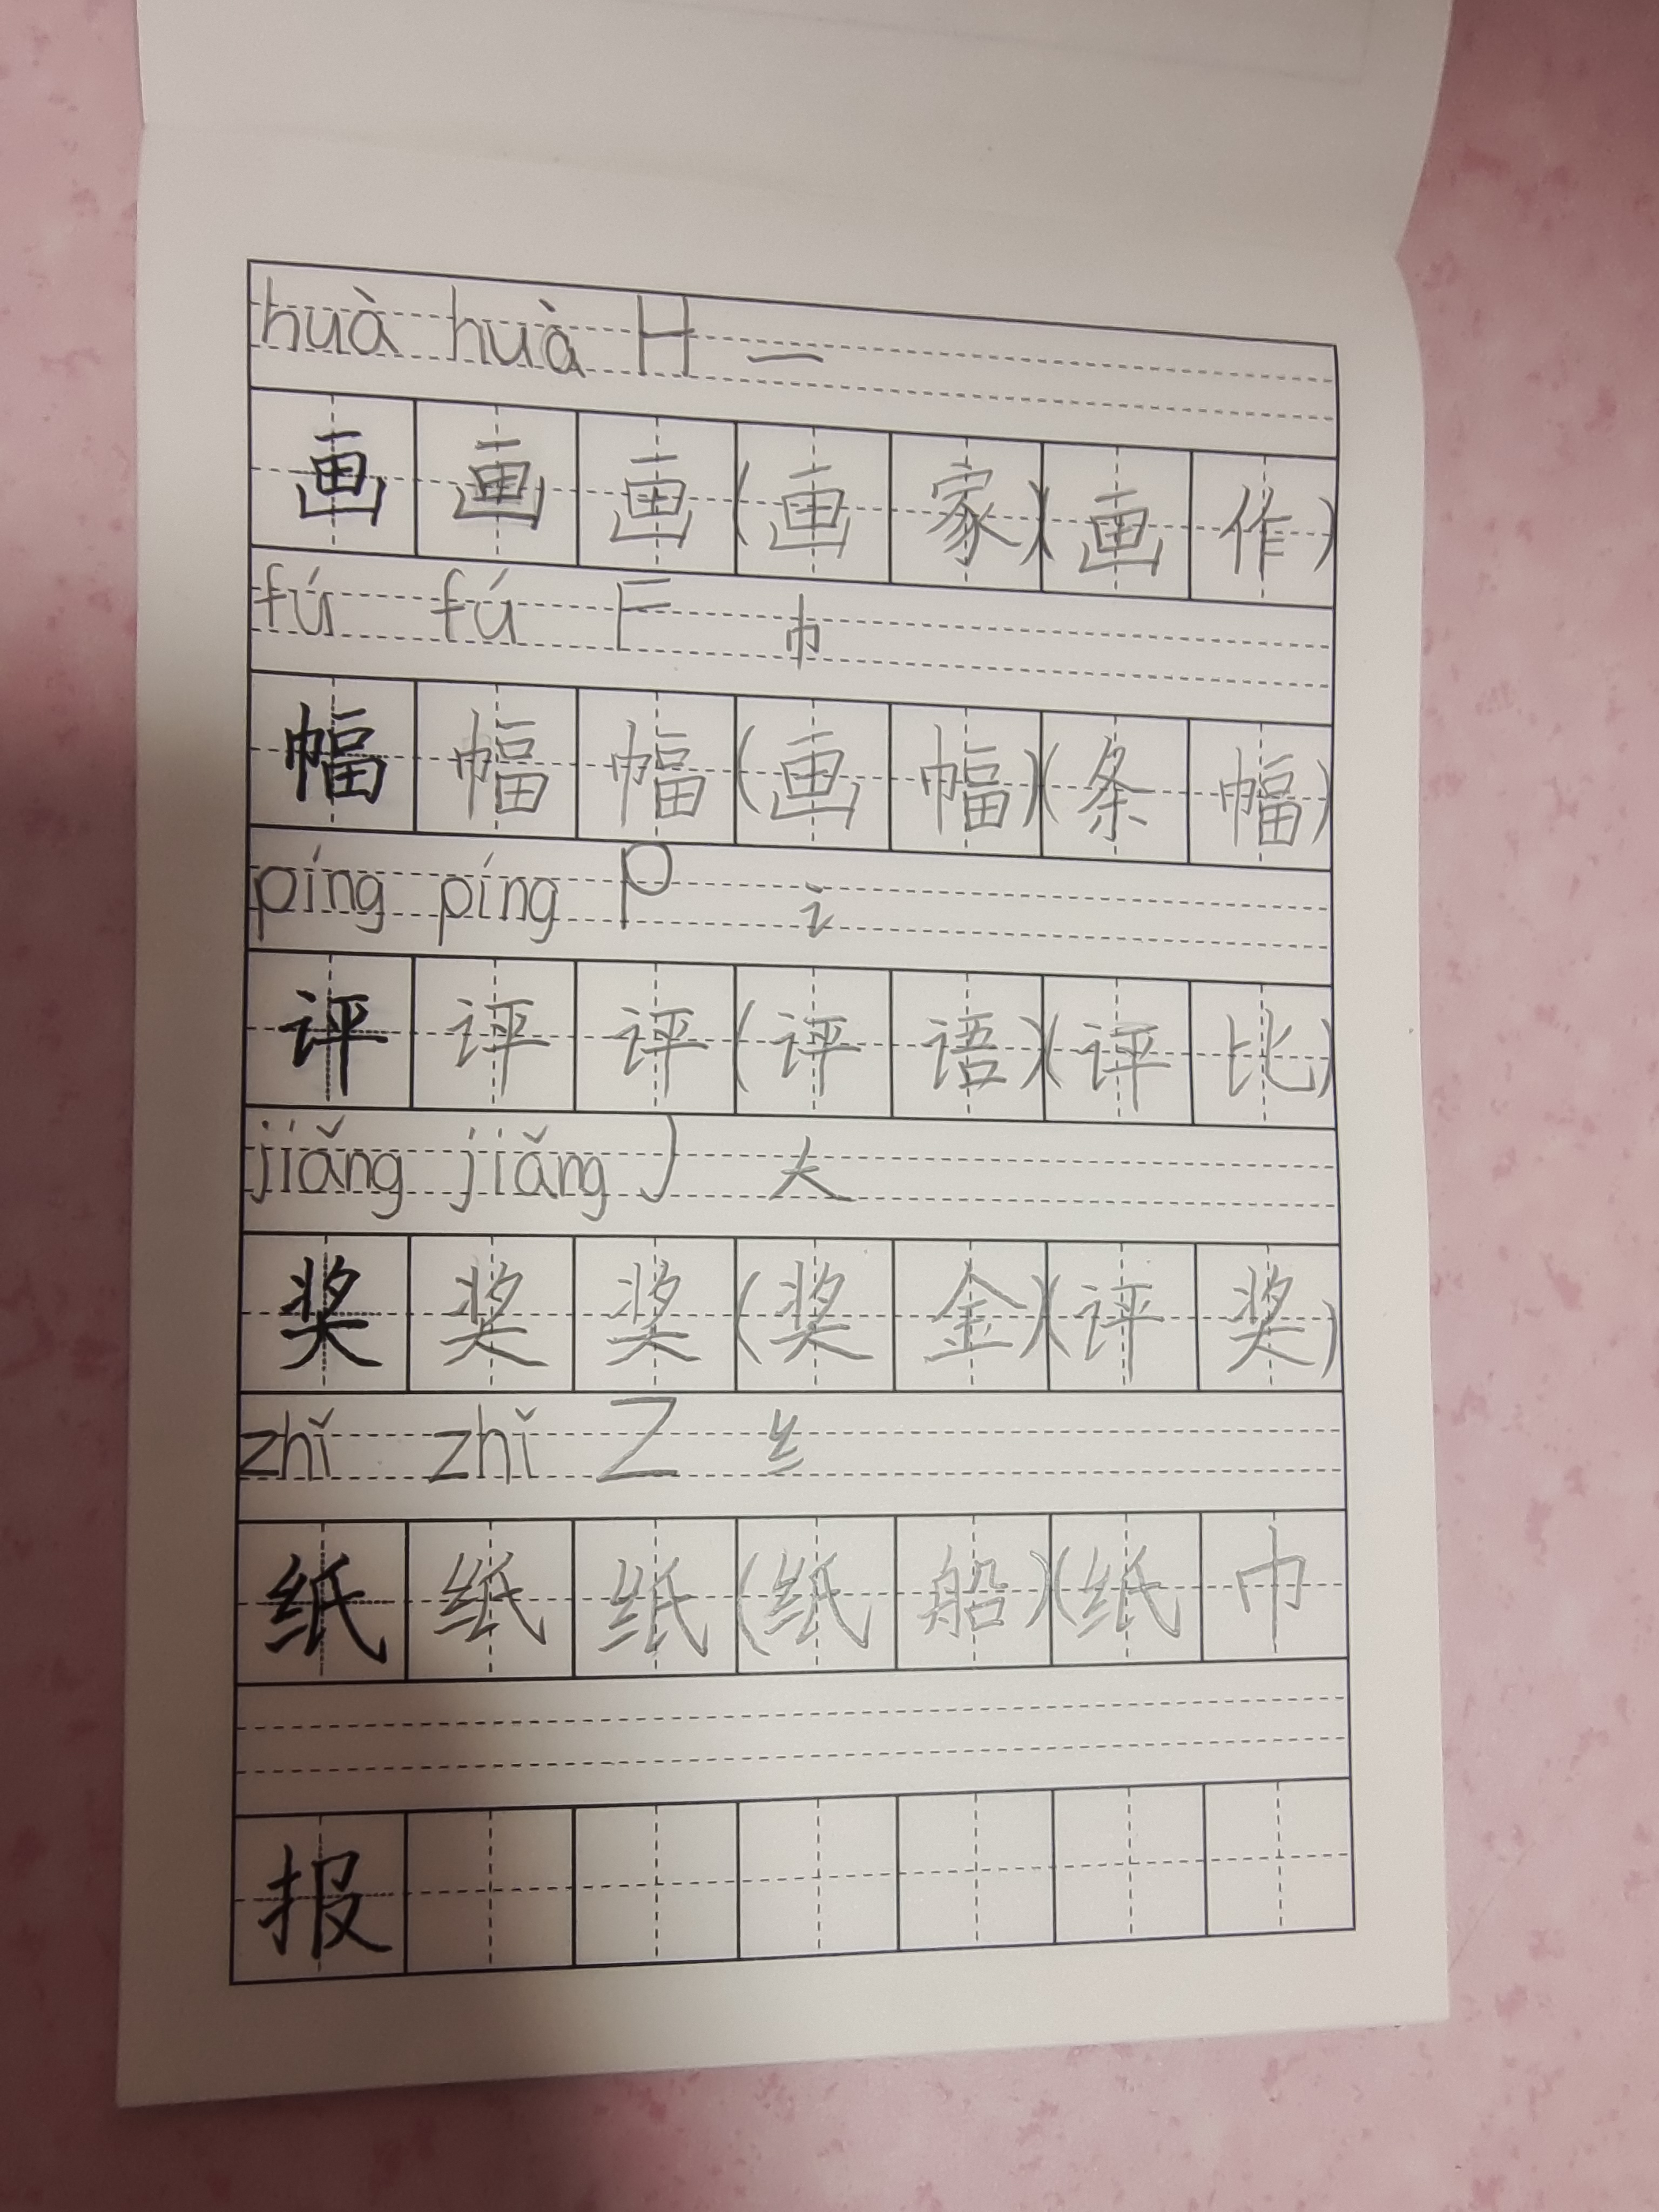 huà huà H 一
画 画 画 (画 家)(画 作)
fú fú F 巾
幅 幅 幅 (画 幅)(条 幅)
píng píng P 讠
评 评 评 (评 语)(评 比)
jiǎng jiǎng J 大
奖 奖 奖 (奖 金)(评 奖)
zhǐ zhǐ Z 纟
纸 纸 纸 (纸 船)(纸 巾
报